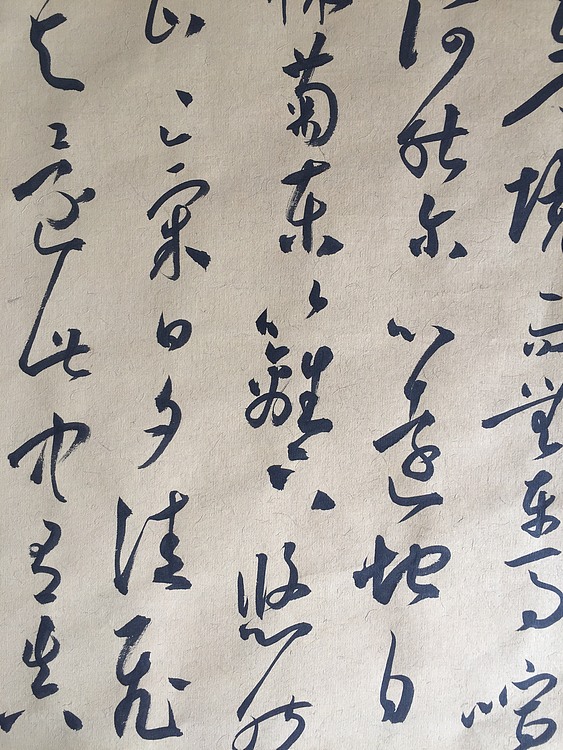 境而無車馬喧
何能爾心遠地自
採菊東籬下悠然
山〻氣日夕佳飛
与還此中有真